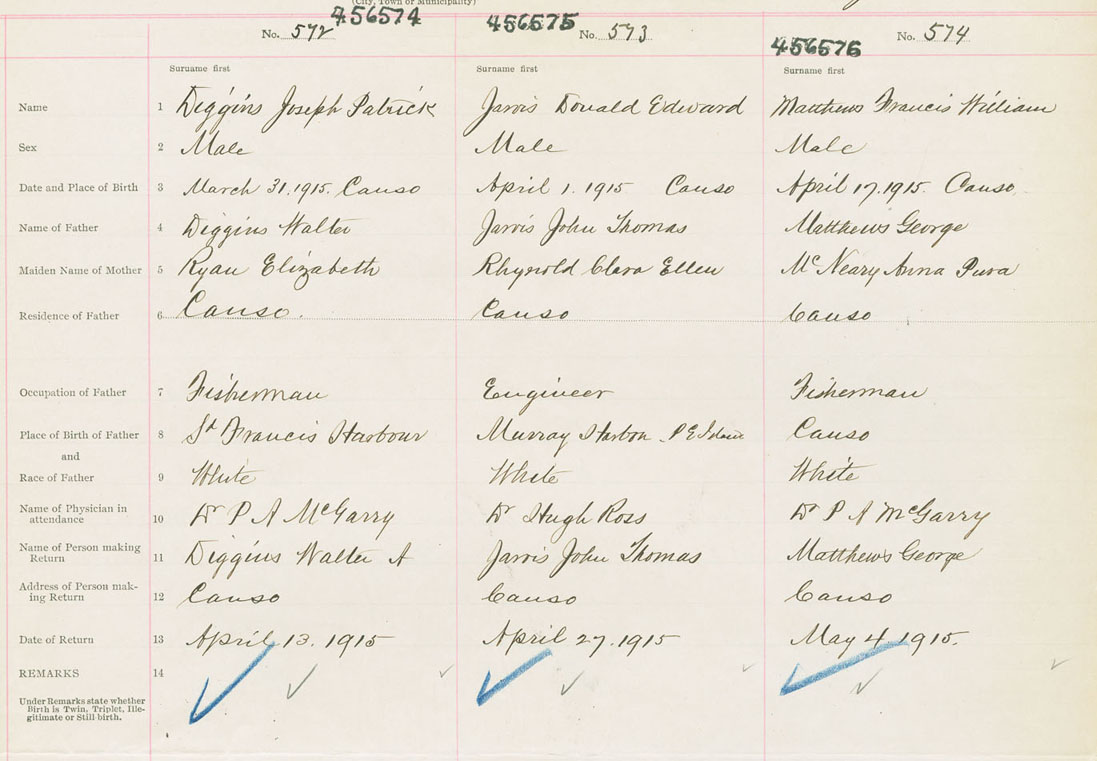 (City, Town or Municipality)
456574 456575 456576
No. 572 No. 573 No. 574
Surname first Surname first Surname first
Name 1 Diggins Joseph Patrick Jarvis Donald Edward Matthews Francis William
Sex 2 Male Male Male
Date and Place of Birth 3 March 31.1915. Canso April 1. 1915 Canso April 17.1915. Canso.
Name of Father 4 Diggins Walter Jarvis John Thomas Matthews George
Maiden Name of Mother 5 Ryan Elizabeth Rhynold Clara Ellen McNeary Anna
Residence of Father 6 Canso. Canso Canso
Occupation of Father 7 Fisherman Engineer Fisherman
Place of Birth of Father 8 St Francis Harbour Murray Harbor P E Canso
and
Race of Father 9 White White White
Name of Physician in
attendance 10 Dr P A McGarry Dr Hugh Ross Dr P A McGarry
Name of Person making
Return 11 Diggins Walter A Jarvis John Thomas Matthews George
Address of Person mak-
ing Return 12 Canso Canso Canso
Date of Return 13 April 13. 1915 April 27.1915 May 4 1915.
REMARKS 14
Under Remarks state whether
Birth is Twin, Triplet, Ille-
gitimate or Still birth.